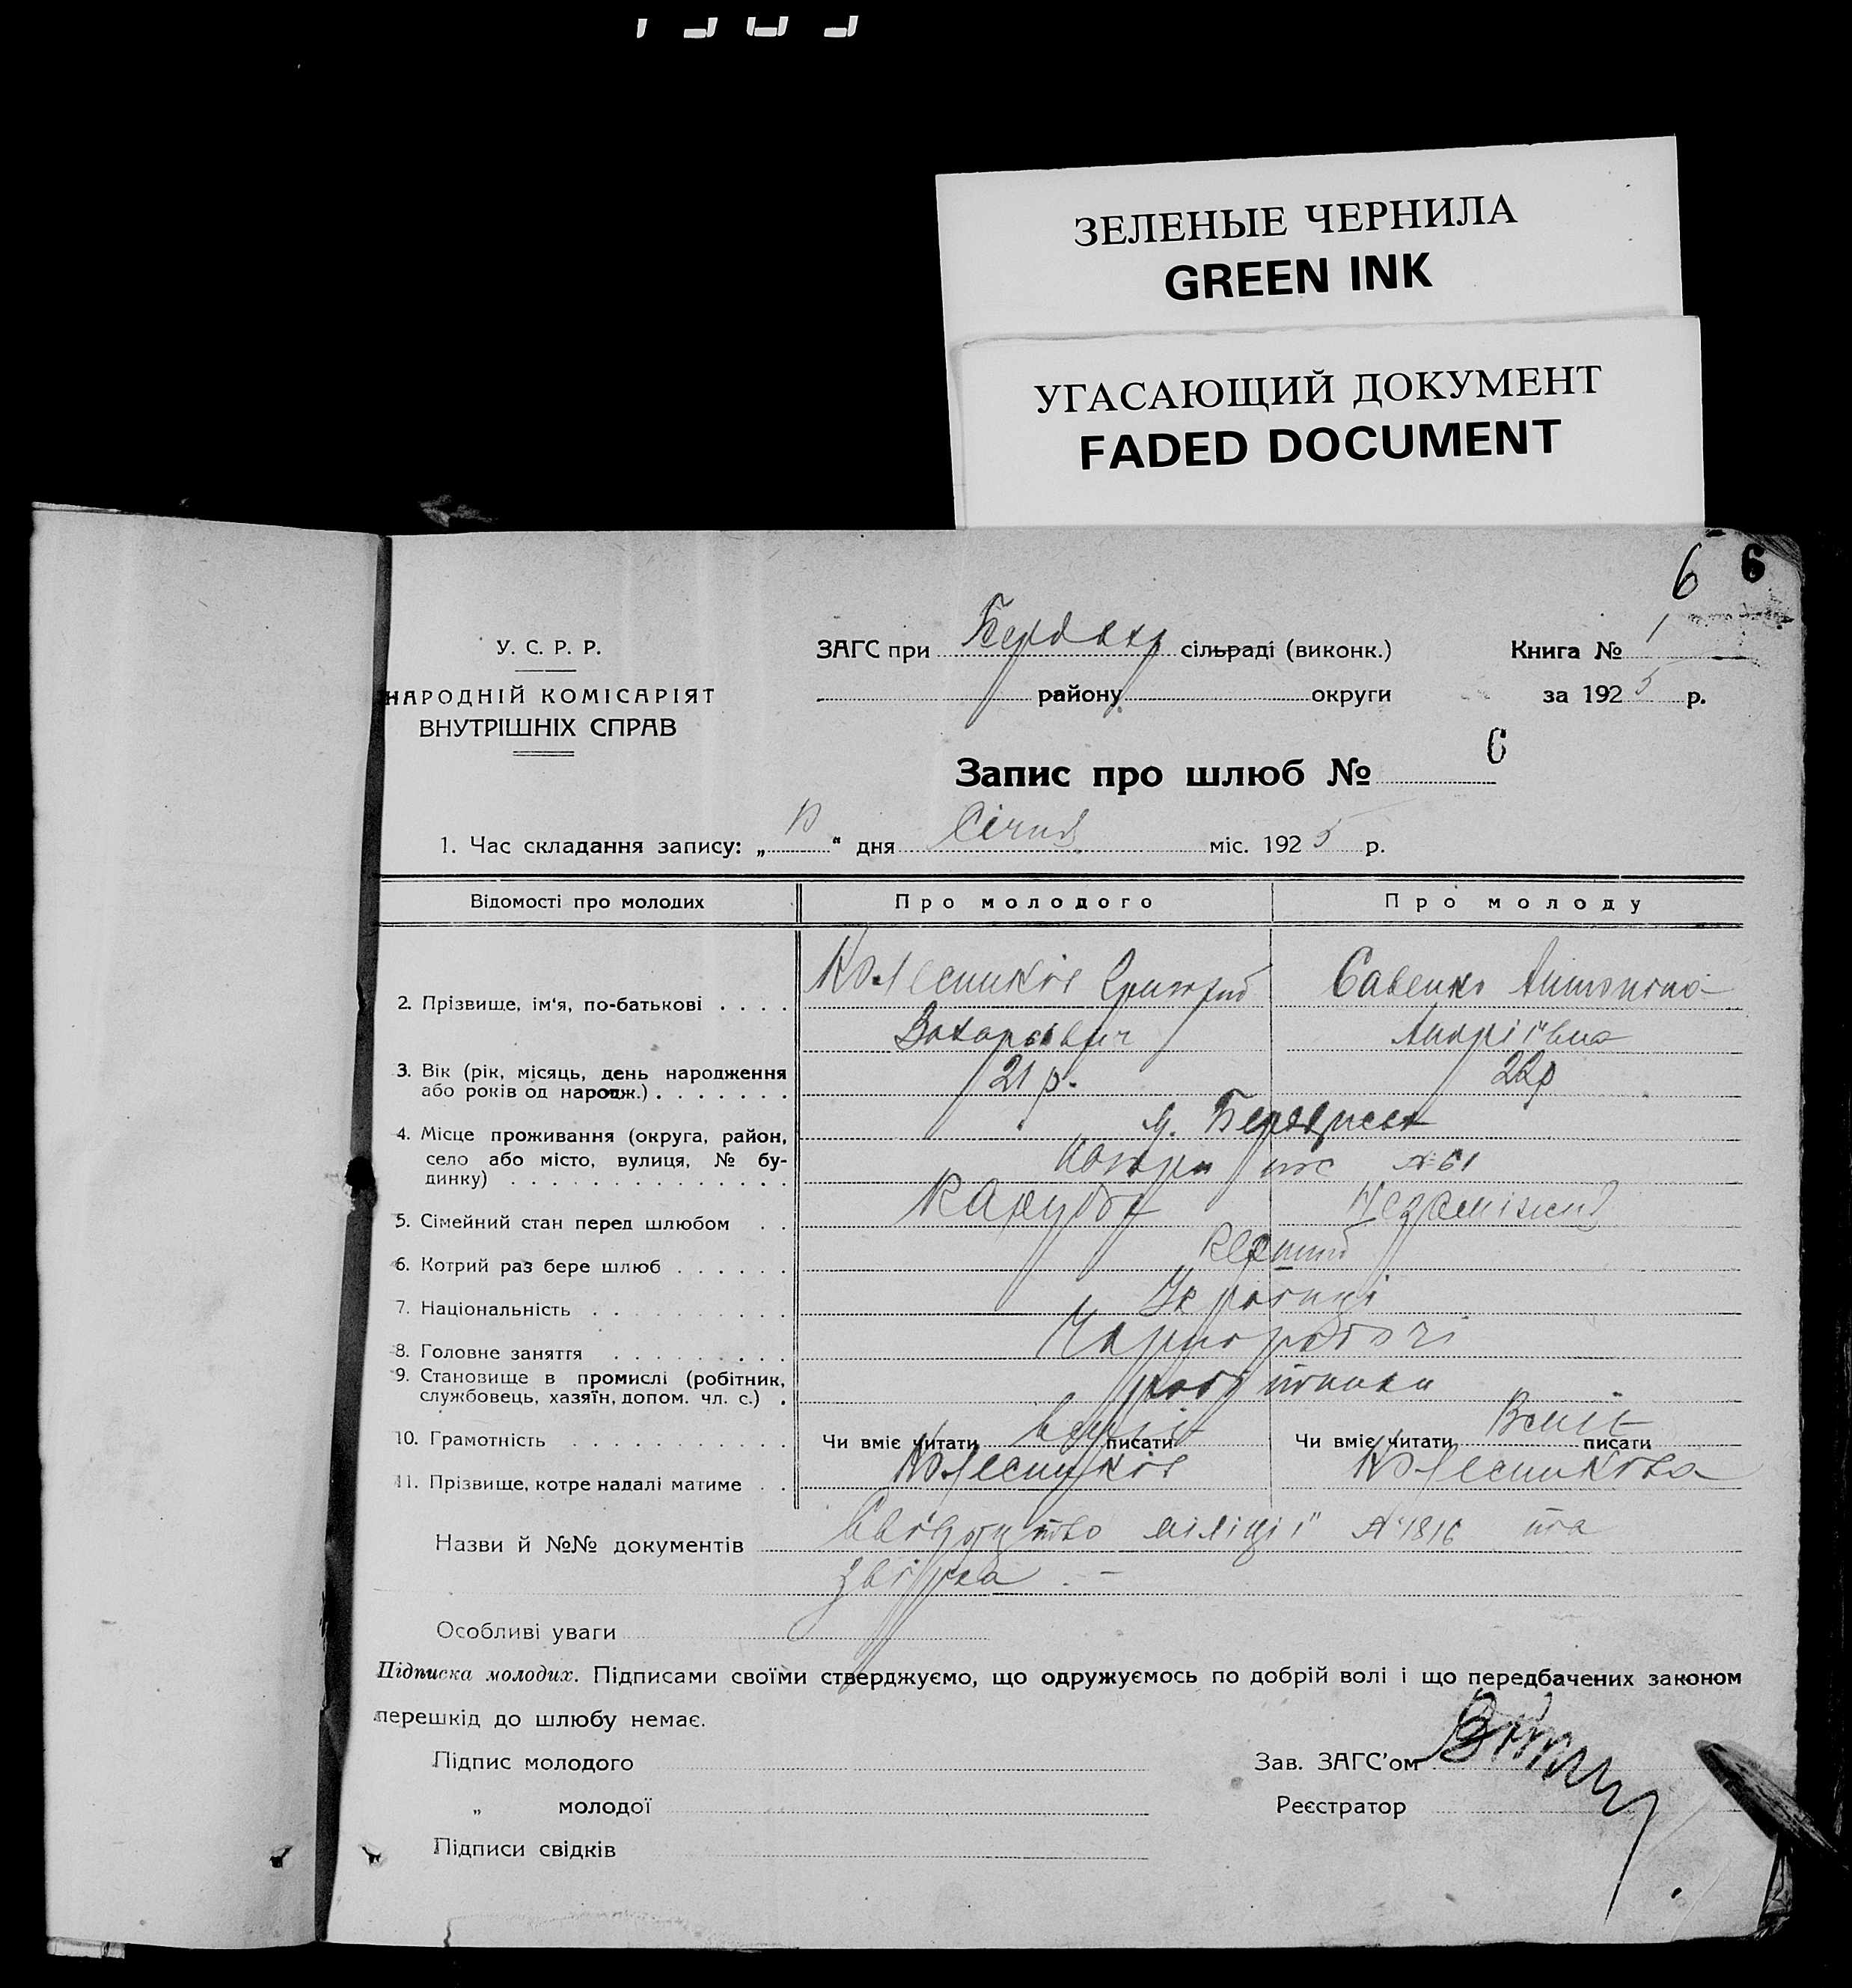 ЗЕЛЕНЫЕ ЧЕРНИЛА
GREEN INK
УГАСАЮЩИЙ ДОКУМЕНТ
FADED DOCUMENT
6 6
У. С. Р. Р.
НАРОДНІЙ КОМІСАРІЯТ
ВНУТРІШНІХ СПРАВ
ЗАГС при сільраді (виконк.)
району округи
Книга № 1
за 1925 р.
Запис про шлюб № 6
1. Час складання запису: „ “ дня Січня міс. 1925 р.
Відомості про молодих Про молодого Про молоду
2. Прізвище, ім‘я, по-батькові Колесніков Григорій Савенко Антоніна
Захарович Андріївна
3. Вік (рік, місяць, день народження
або років од народж.) 21 р. 22 р
4. Місце проживання (округа, район, м. Бердянськ
село або місто, вулиця, № бу- № 61
динку)
5. Сімейний стан перед шлюбом Парубок Незаміжня
6. Котрий раз бере шлюб Перший
7. Національність Українці
8. Головне заняття Чорноробочі
9. Становище в промислі (робітник,
службовець, хазяїн, допом. чл. с.)
10. Грамотність Чи вміє читати вміє писати Чи вміє читати Вміє писати
11. Прізвище, котре надалі матиме Колесніков Колеснікова
Назви й №№ документів Свідоцтво міліції № 1816 та
Особливі уваги
Підписка молодих. Підписами своїми стверджуємо, що одружуємось по добрій волі і що передбачених законом
перешкід до шлюбу немає.
Підпис молодого
„ молодої
Підписи свідків
Зав. ЗАГС’ом
Реєстратор